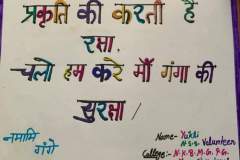 प्रकृति की करती है
रक्षा,
चलो हम करे माँ गंगा की
सुरक्षा /
नमामि
गंगे
Name:-
N.S.S. Volunteer
College:- N.K.B.M.G. P.G.